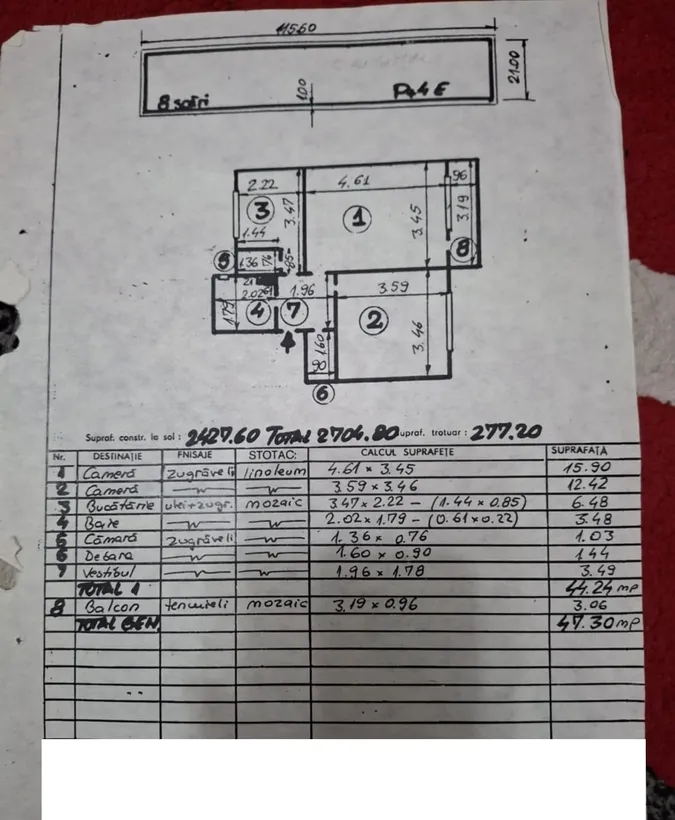 115.60
21.00
1.00
8 scări
P+4E
2.22
4.61
96
3
3.47
1
3.45
3.19
1.44
8
5
1.36
76
85
2.02
61
1.96
3.59
1.79
4
7
2
3.46
1.60
90
6
Supraf. constr. la sol : 2427.60 TOTAL 2704.80 supraf. trotuar : 277.20
Nr. DESTINAȚIE FNISAJE STOTAC: CALCUL SUPRAFEȚE SUPRAFAȚA
1 Cameră zugrăveli linoleum 4.61 x 3.45 15.90
2 Cameră 3.59 x 3.46 12.42
3 Bucătărie ulei+zugr. mozaic 3.47 x 2.22 - (1.44 x 0.85) 6.48
4 Baie 2.02 x 1.79 - (0.61 x 0.22) 3.48
5 Cămară zugrăveli 1.36 x 0.76 1.03
6 Debara 1.60 x 0.90 1.44
7 Vestibul 1.96 x 1.78 3.49
TOTAL 1 44.24 mp
8 Balcon tencuieli mozaic 3.19 x 0.96 3.06
TOTAL GEN. 47.30 mp